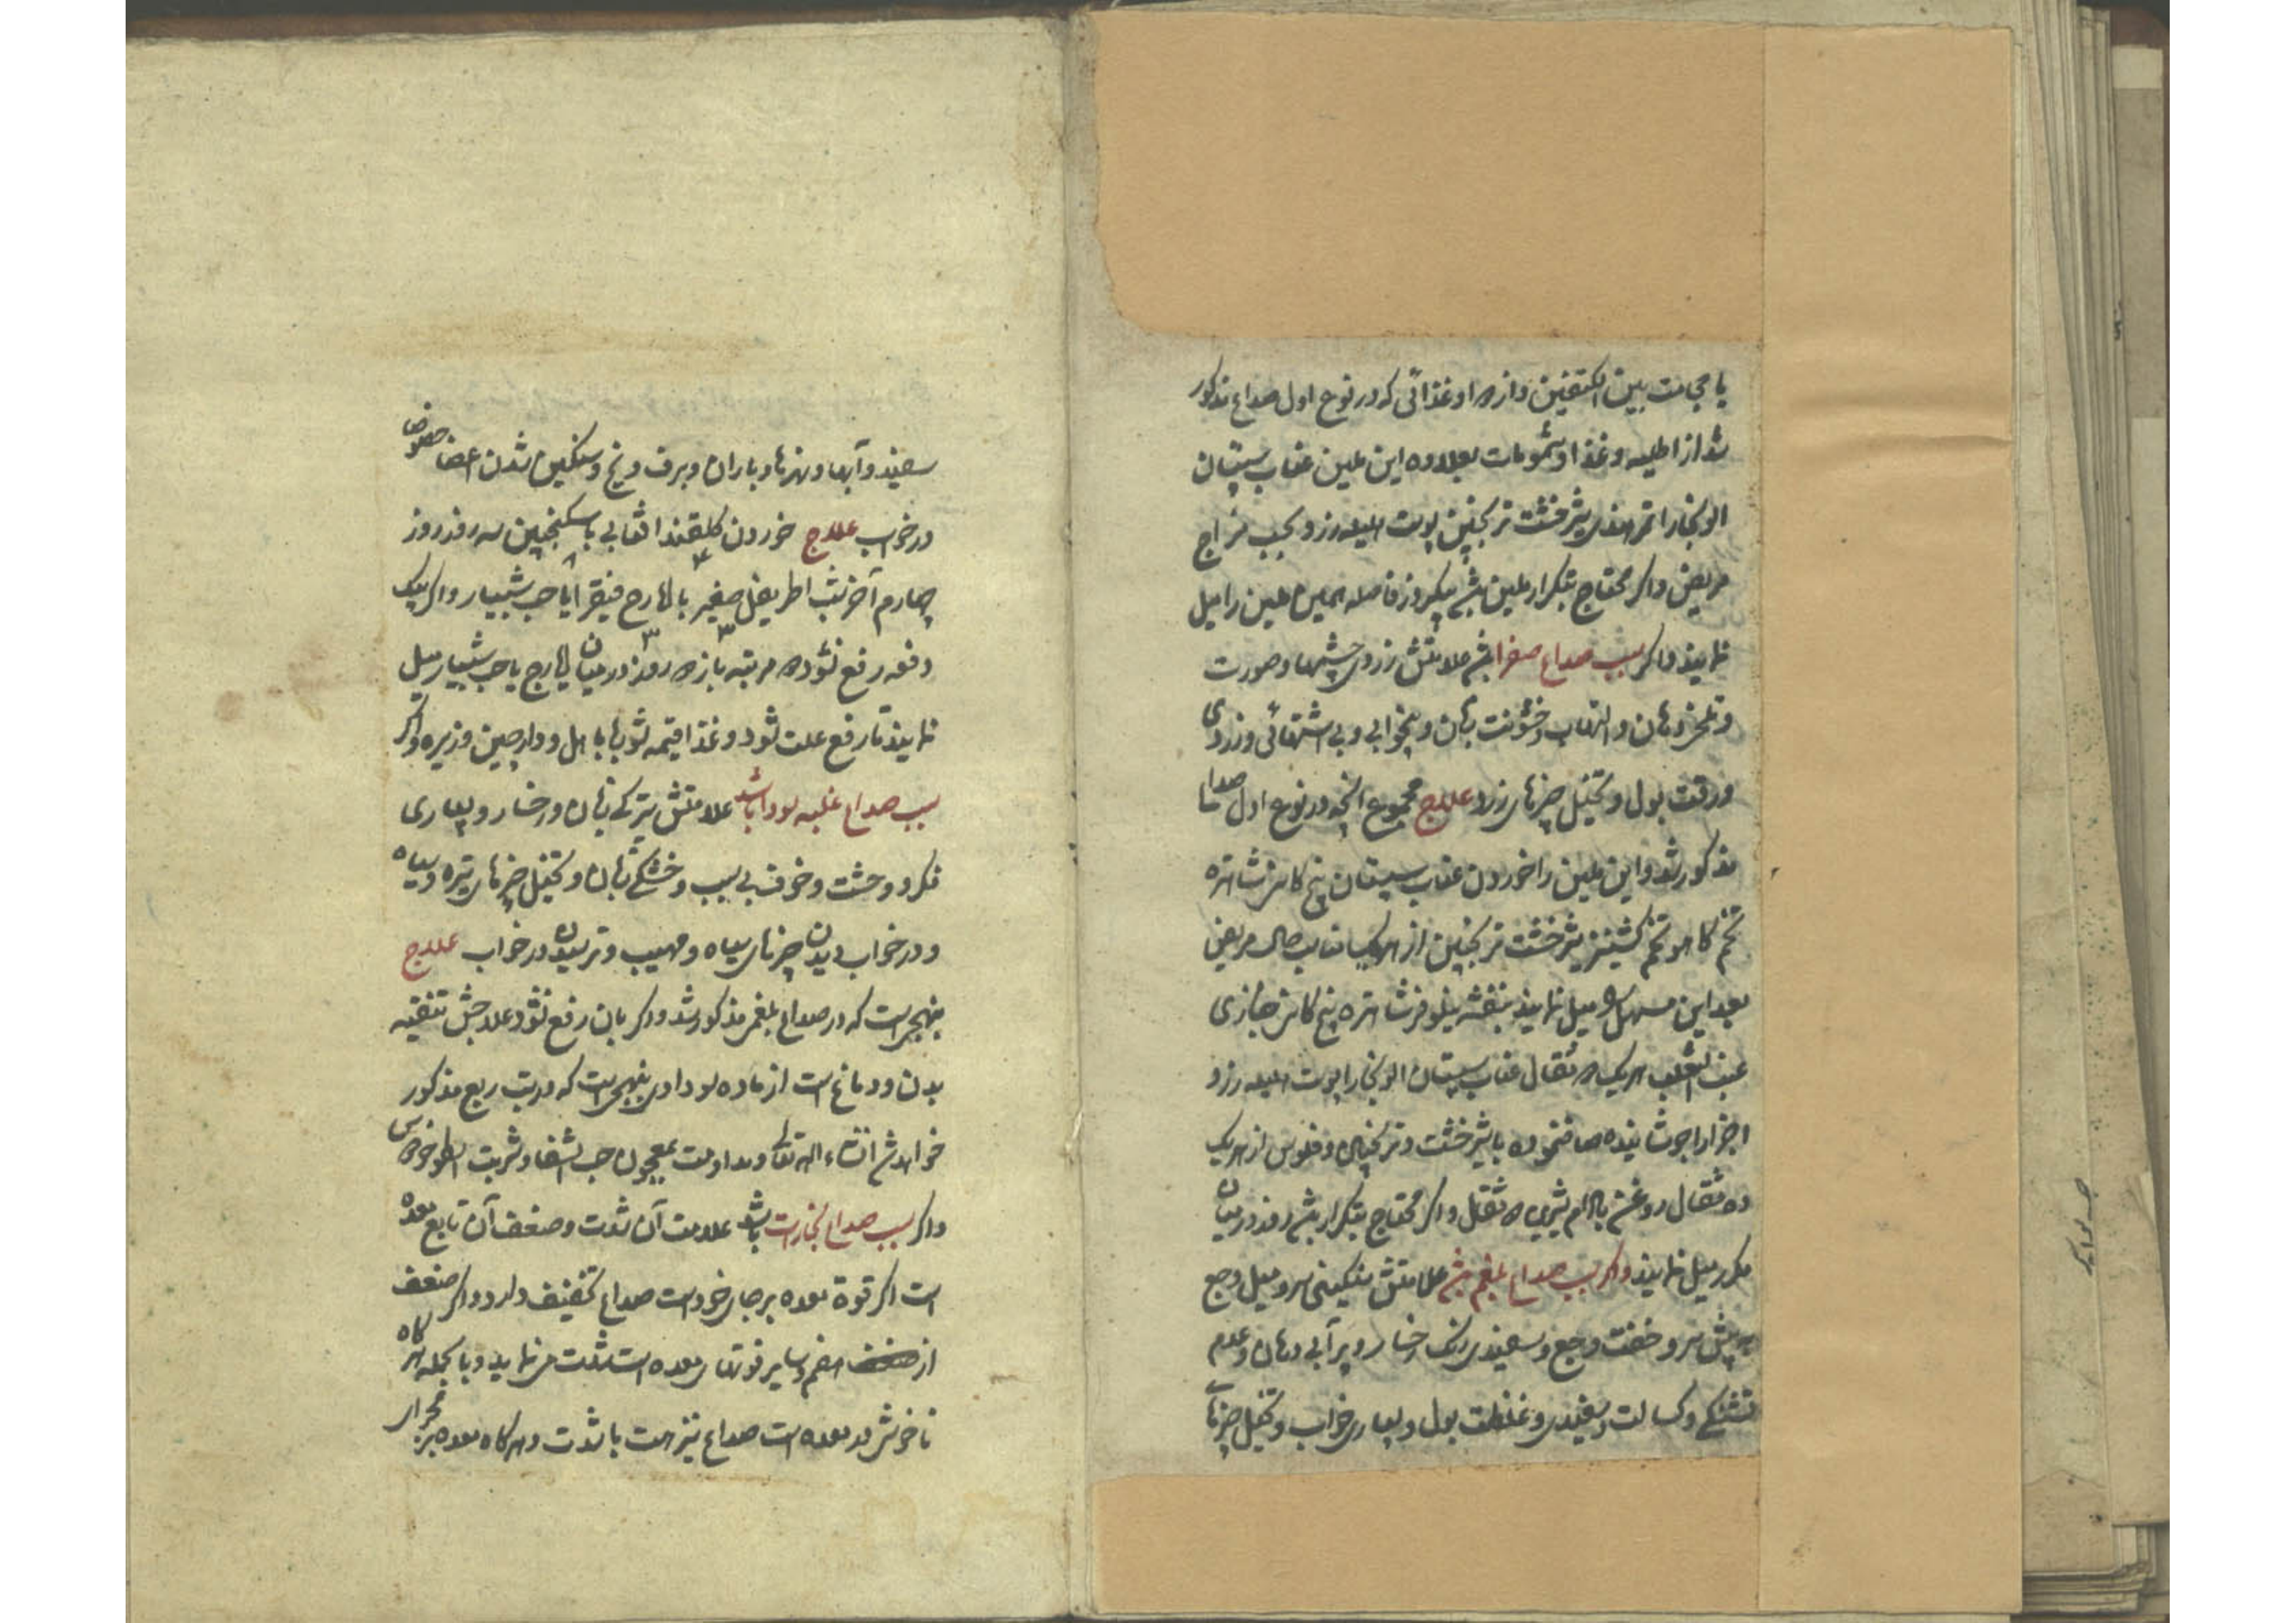 یا حجامت بین الکتفین و از دوا و غذائی که در نوع اول صداع مذکور
شد از اطلیه و غذا و شمومات بعلاوه این ملین عناب سپستان
الوبخارا تمرهندی شیرخشت ترنجبین پوست هلیله زرد بحسب مزاج
مریض و اگر محتاج بتکرار ملین باشد یکروز فاصله همین ملین را میل
نمایند و اگر سبب صداع صفرا باشد علامتش زردی چشمها و صورت
و تلخی دهان و التهاب و خشونت زبان و بیخوابی و بی اشتهائی و زردی
و رقت بول و تخیل چیزهای زرد علاج مجموع آنچه در نوع اول صداع
مذکور شد و این ملین را خوردن عناب سپستان بیخ کاسنی شاهتره
تخم کاهو تخم گشنیز شیرخشت ترنجبین از هر یک مناسب حال مریض
بعد این مسهل میل نمایند بنفشه نیلوفر شاهتره بیخ کاسنی خبازی
عنب الثعلب هر یک مثقال عناب سپستان الوبخارا پوست هلیله زرد
اجزا را جوشانیده صاف نموده با شیرخشت و ترنجبین و فلوس از هر یک
ده مثقال روغن بادام شیرین مثقال و اگر محتاج بتکرار باشد روز در میان
مکرر میل نمایند و اگر سبب صداع بلغم باشد علامتش سنگینی سر و میل وجع
به پیش سر و خفت وجع و سفیدی رنگ رخسار و پر آبی دهان و عدم
تشنگی و کسالت و سفیدی و غلظت بول و بسیاری خواب و تخیل چیزهای
سفید و آبها و نهرها و باران و برف و یخ و سنگین شدن اعضا خصوص
در خواب علاج خوردن گلقند افتابی با سکنجبین سه روز روز
چهارم آخر شب اطریفل صغیر با ایارج فیقرا یا حب شبیار و اگر بیک
دفعه رفع نشود مرتبه باز روز در میان ایارج یا حب شبیار میل
نمایند تا رفع علت شود و غذا قیمه شوربا با هل و دارچین و زیره و اگر
سبب صداع غلبه سودا باشد علامتش تیرگی زبان و رخسار و بسیاری
فکر و وحشت و خوف بی سبب و خشکی زبان و تخیل چیزهای تیره و سیاه
و در خواب دیدن چیزهای سیاه و مهیب و ترسیدن در خواب علاج
بنهجی است که در صداع بلغمی مذکور شد و اگر بآن رفع نشود علاجش تنقیه
بدن و دماغ است از ماده سوداوی بنهجی است که در تب ربع مذکور
خواهد شد انشاء الله تعالی و مداومت بمعجون حب الشفا و شربت اسطوخودوس
و اگر سبب صداع بخارات باشد علامت آن شدت و ضعف آن تابع معده
است اگر قوة معده بر جای خود است صداع تخفیف دارد و اگر ضعف
از هضم و سایر قوتهای معده است شدت می نماید و بالجمله هرگاه
ناخوشی در معده است صداع نیز هست با شدت و هرگاه معده بر مجرای